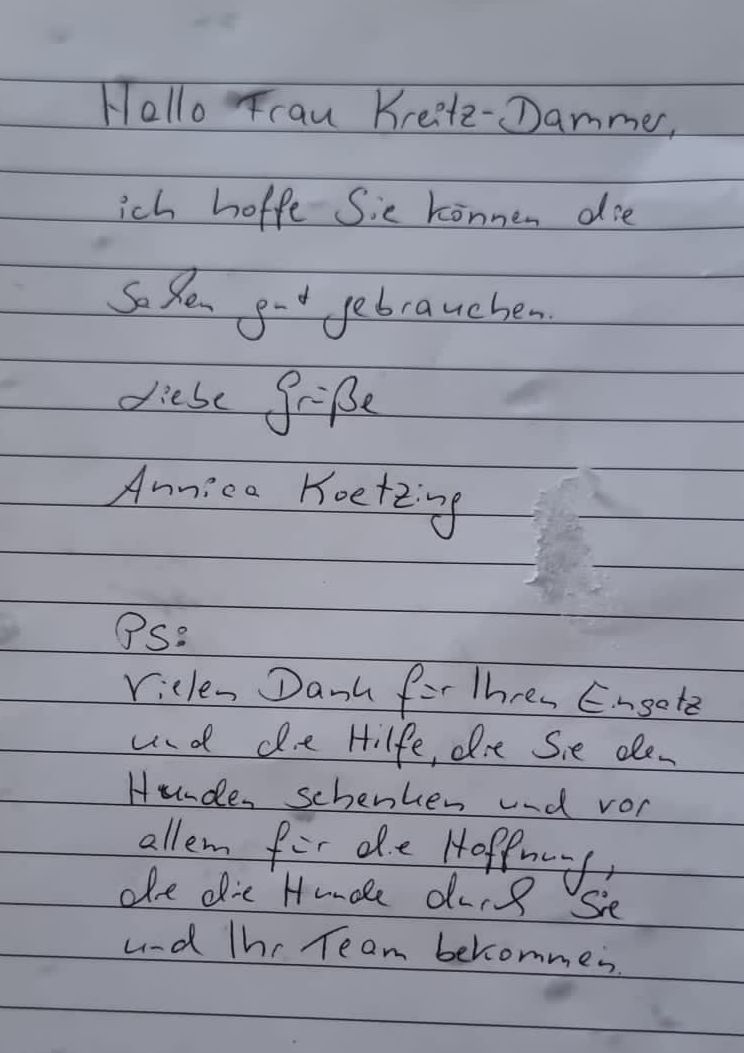 Hallo Frau Kreitz-Dammer,
ich hoffe Sie können die
Sachen gut gebrauchen.
Liebe Grüße
Annica Koetzing
PS:
Vielen Dank für Ihren Einsatz
und die Hilfe, die Sie den
Hunden schenken und vor
allem für die Hoffnung,
die die Hunde durch Sie
und Ihr Team bekommen.